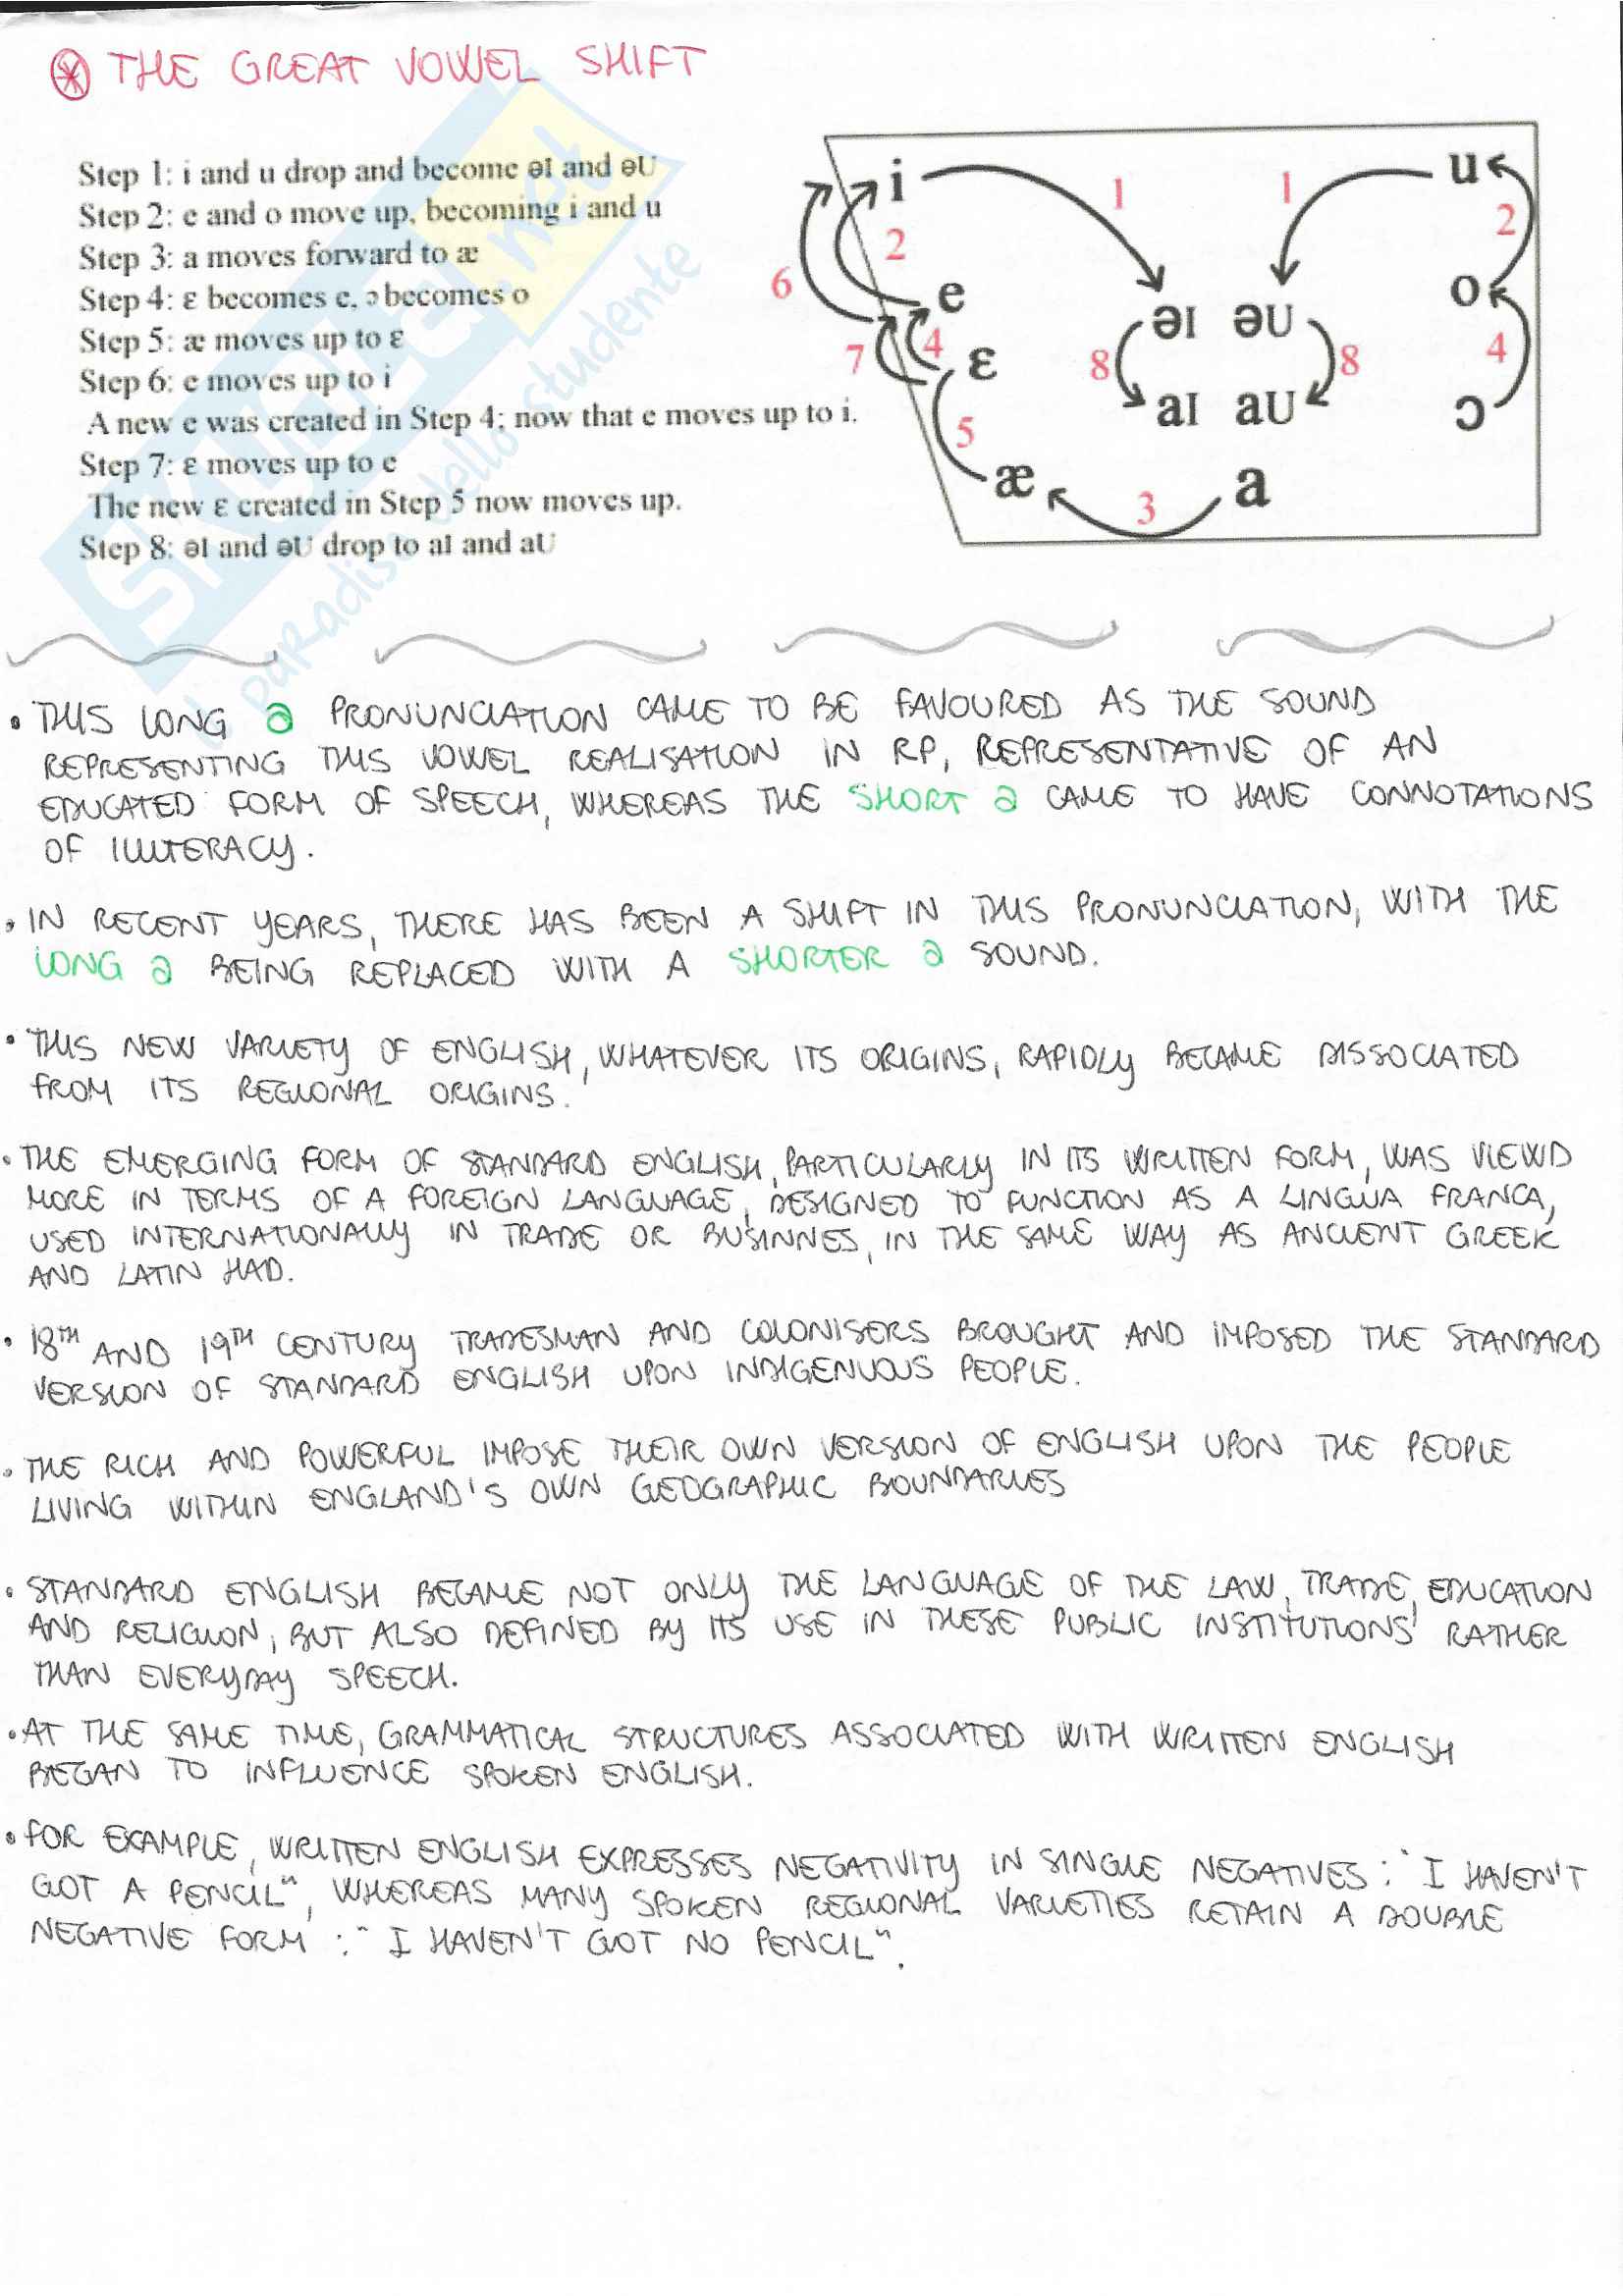 THE GREAT VOWEL SHIFT
Step 1: i and u drop and become əI and əU
Step 2: e and o move up, becoming i and u
Step 3: a moves forward to æ
Step 4: ɛ becomes e, ɔ becomes o
Step 5: æ moves up to ɛ
Step 6: e moves up to i
A new e was created in Step 4; now that e moves up to i.
Step 7: ɛ moves up to e
The new ɛ created in Step 5 now moves up.
Step 8: əI and əU drop to aI and aU
i 1 1 u
2 2
6 e o
əI əU
7 4 ɛ 8 8 4
aI aU ɔ
5
æ 3 a
SKUOLA.net
il paradiso dello studente
• THIS LONG a PRONUNCIATION CAME TO BE FAVOURED AS THE SOUND
REPRESENTING THIS VOWEL REALISATION IN RP, REPRESENTATIVE OF AN
EDUCATED FORM OF SPEECH, WHEREAS THE SHORT a CAME TO HAVE CONNOTATIONS
OF ILLITERACY.
• IN RECENT YEARS, THERE HAS BEEN A SHIFT IN THIS PRONUNCIATION, WITH THE
LONG a BEING REPLACED WITH A SHORTER a SOUND.
• THIS NEW VARIETY OF ENGLISH, WHATEVER ITS ORIGINS, RAPIDLY BECAME DISSOCIATED
FROM ITS REGIONAL ORIGINS.
• THE EMERGING FORM OF STANDARD ENGLISH, PARTICULARLY IN ITS WRITTEN FORM, WAS VIEWD
MORE IN TERMS OF A FOREIGN LANGUAGE, DESIGNED TO FUNCTION AS A LINGUA FRANCA,
USED INTERNATIONALLY IN TRADE OR BUSINNES, IN THE SAME WAY AS ANCIENT GREEK
AND LATIN HAD.
• 18TH AND 19TH CENTURY TRADESMAN AND COLONISERS BROUGHT AND IMPOSED THE STANDARD
VERSION OF STANDARD ENGLISH UPON INDIGENUOUS PEOPLE.
• THE RICH AND POWERFUL IMPOSE THEIR OWN VERSION OF ENGLISH UPON THE PEOPLE
LIVING WITHIN ENGLAND'S OWN GEOGRAPHIC BOUNDARIES
• STANDARD ENGLISH BECAME NOT ONLY THE LANGUAGE OF THE LAW, TRADE, EDUCATION
AND RELIGION, BUT ALSO DEFINED BY ITS USE IN THESE PUBLIC INSTITUTIONS RATHER
THAN EVERYDAY SPEECH.
• AT THE SAME TIME, GRAMMATICAL STRUCTURES ASSOCIATED WITH WRITTEN ENGLISH
BEGAN TO INFLUENCE SPOKEN ENGLISH.
• FOR EXAMPLE, WRITTEN ENGLISH EXPRESSES NEGATIVITY IN SINGLE NEGATIVES: "I HAVEN'T
GOT A PENCIL", WHEREAS MANY SPOKEN REGIONAL VARIETIES RETAIN A DOUBLE
NEGATIVE FORM: "I HAVEN'T GOT NO PENCIL".